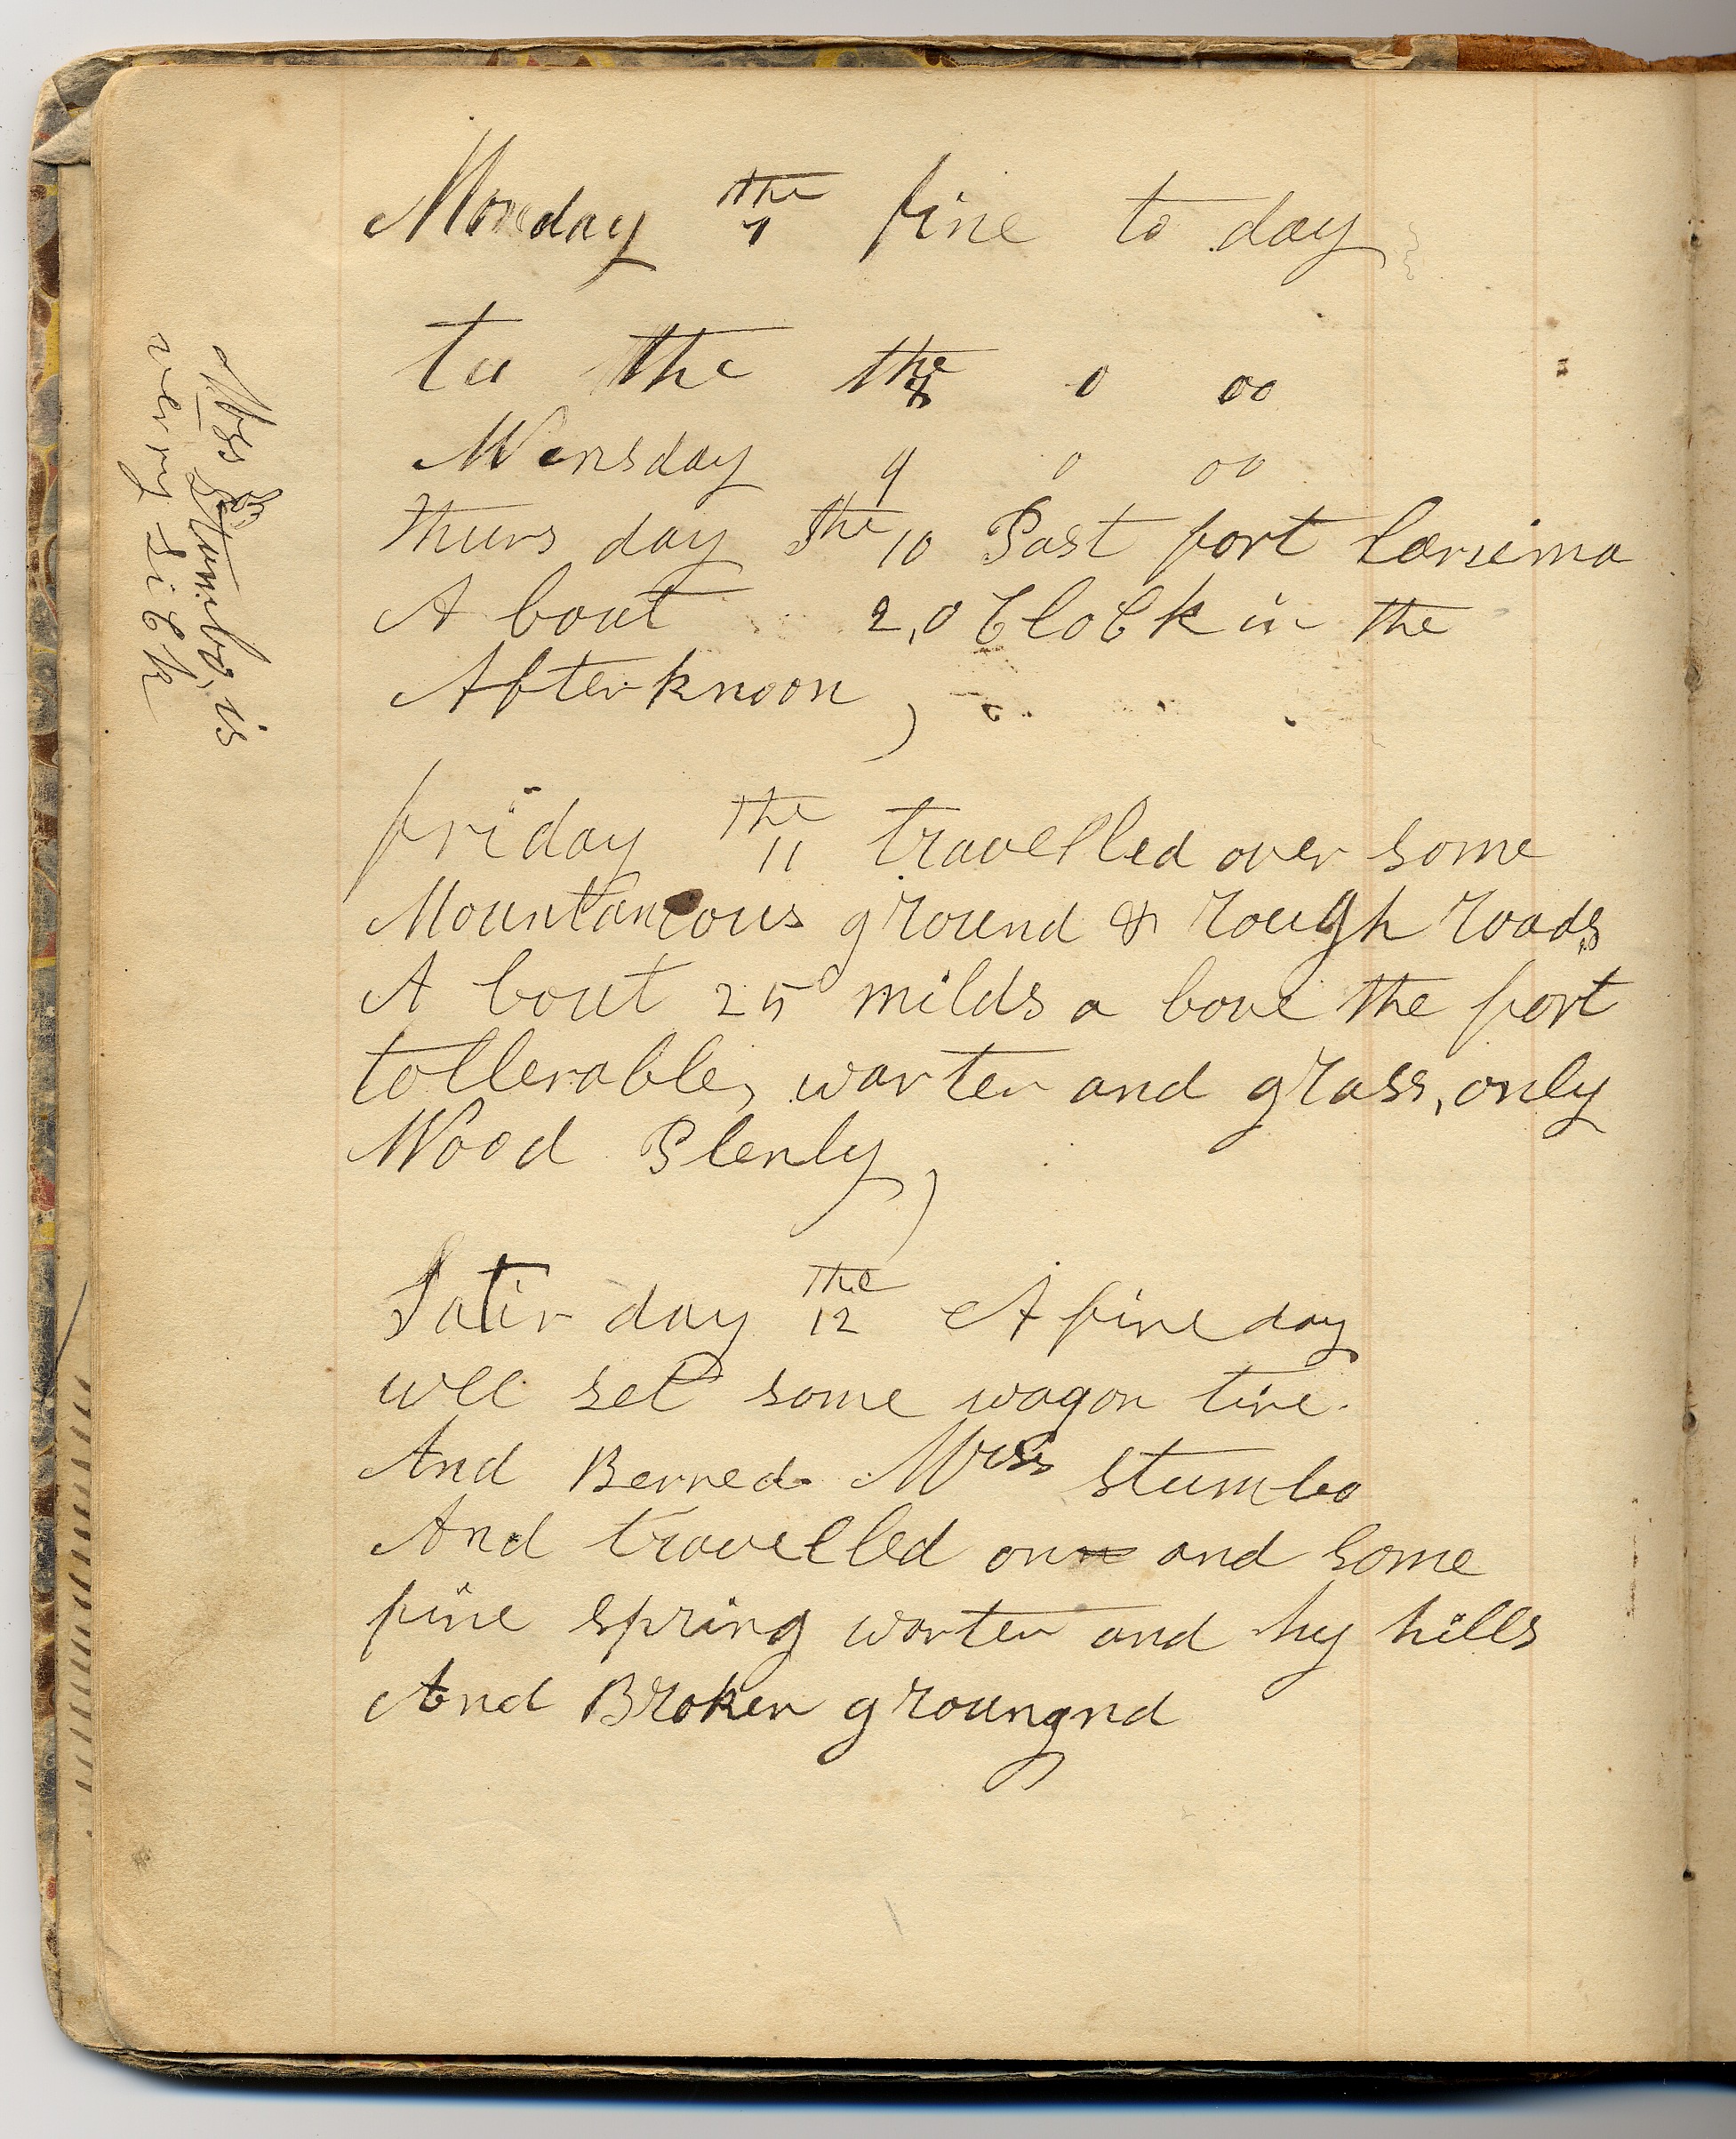 Monday the 7 fine to day
tu the the 8 0 00
Wensday 9 0 00
thurs day the 10 Past fort larima
A bout 2,0 Clock in the
Afterknoon,
friday the 11 travelled over some
Mountaneous ground & rough roads
A bout 25 milds a bove the fort
tollerable, warter and grass, only
Wood Plenly,
Satir day the 12 A fine day
wee set some wagon tire.
And Berred Mrss Stumbo
And travelled onn and some
fine spring warter and hy hills
And Broken groungnd
Mrss Stumbo, is
verry sick